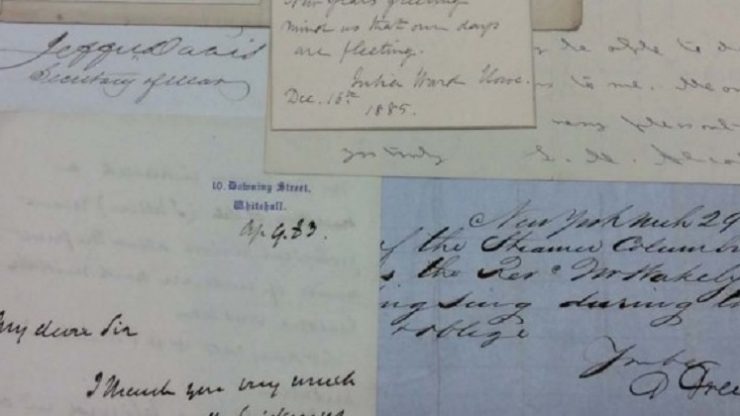 New Years greeting
mind us that our days
are fleeting.
Julia Ward Howe.
Dec. 16th
1885.
Jeffer Davis
Secretary of War
be able to d
to me.
very pleasant
yrs truly
L. M. Alcot
10, Downing Street,
Whitehall.
Ap. 9. 83.
My dear Sir
I thank you very much
New York March 29
of the Steamer Columb
the Revd Mr Wakely
ng Sing during
oblige